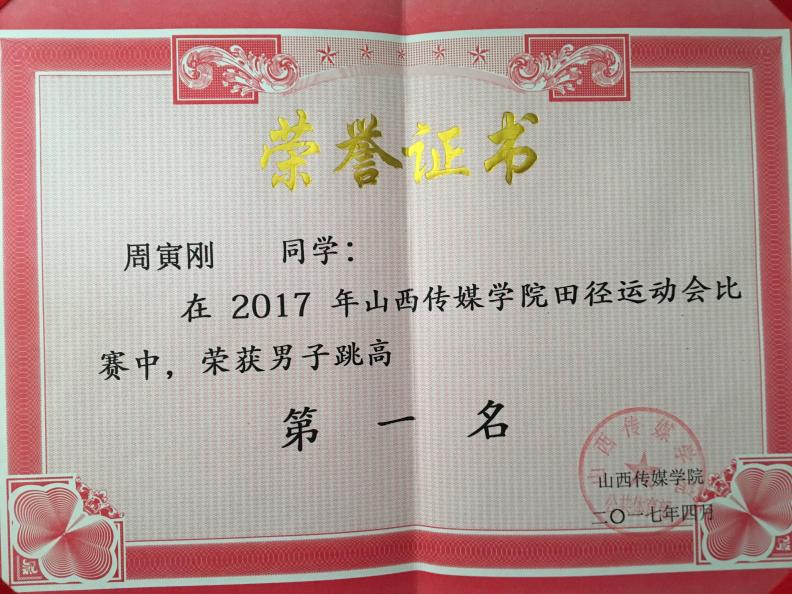 荣誉证书
周寅刚 同学：
在 2017 年山西传媒学院田径运动会比
赛中，荣获男子跳高
第一名
山西传媒学院
山西传媒学院
二〇一七年四月